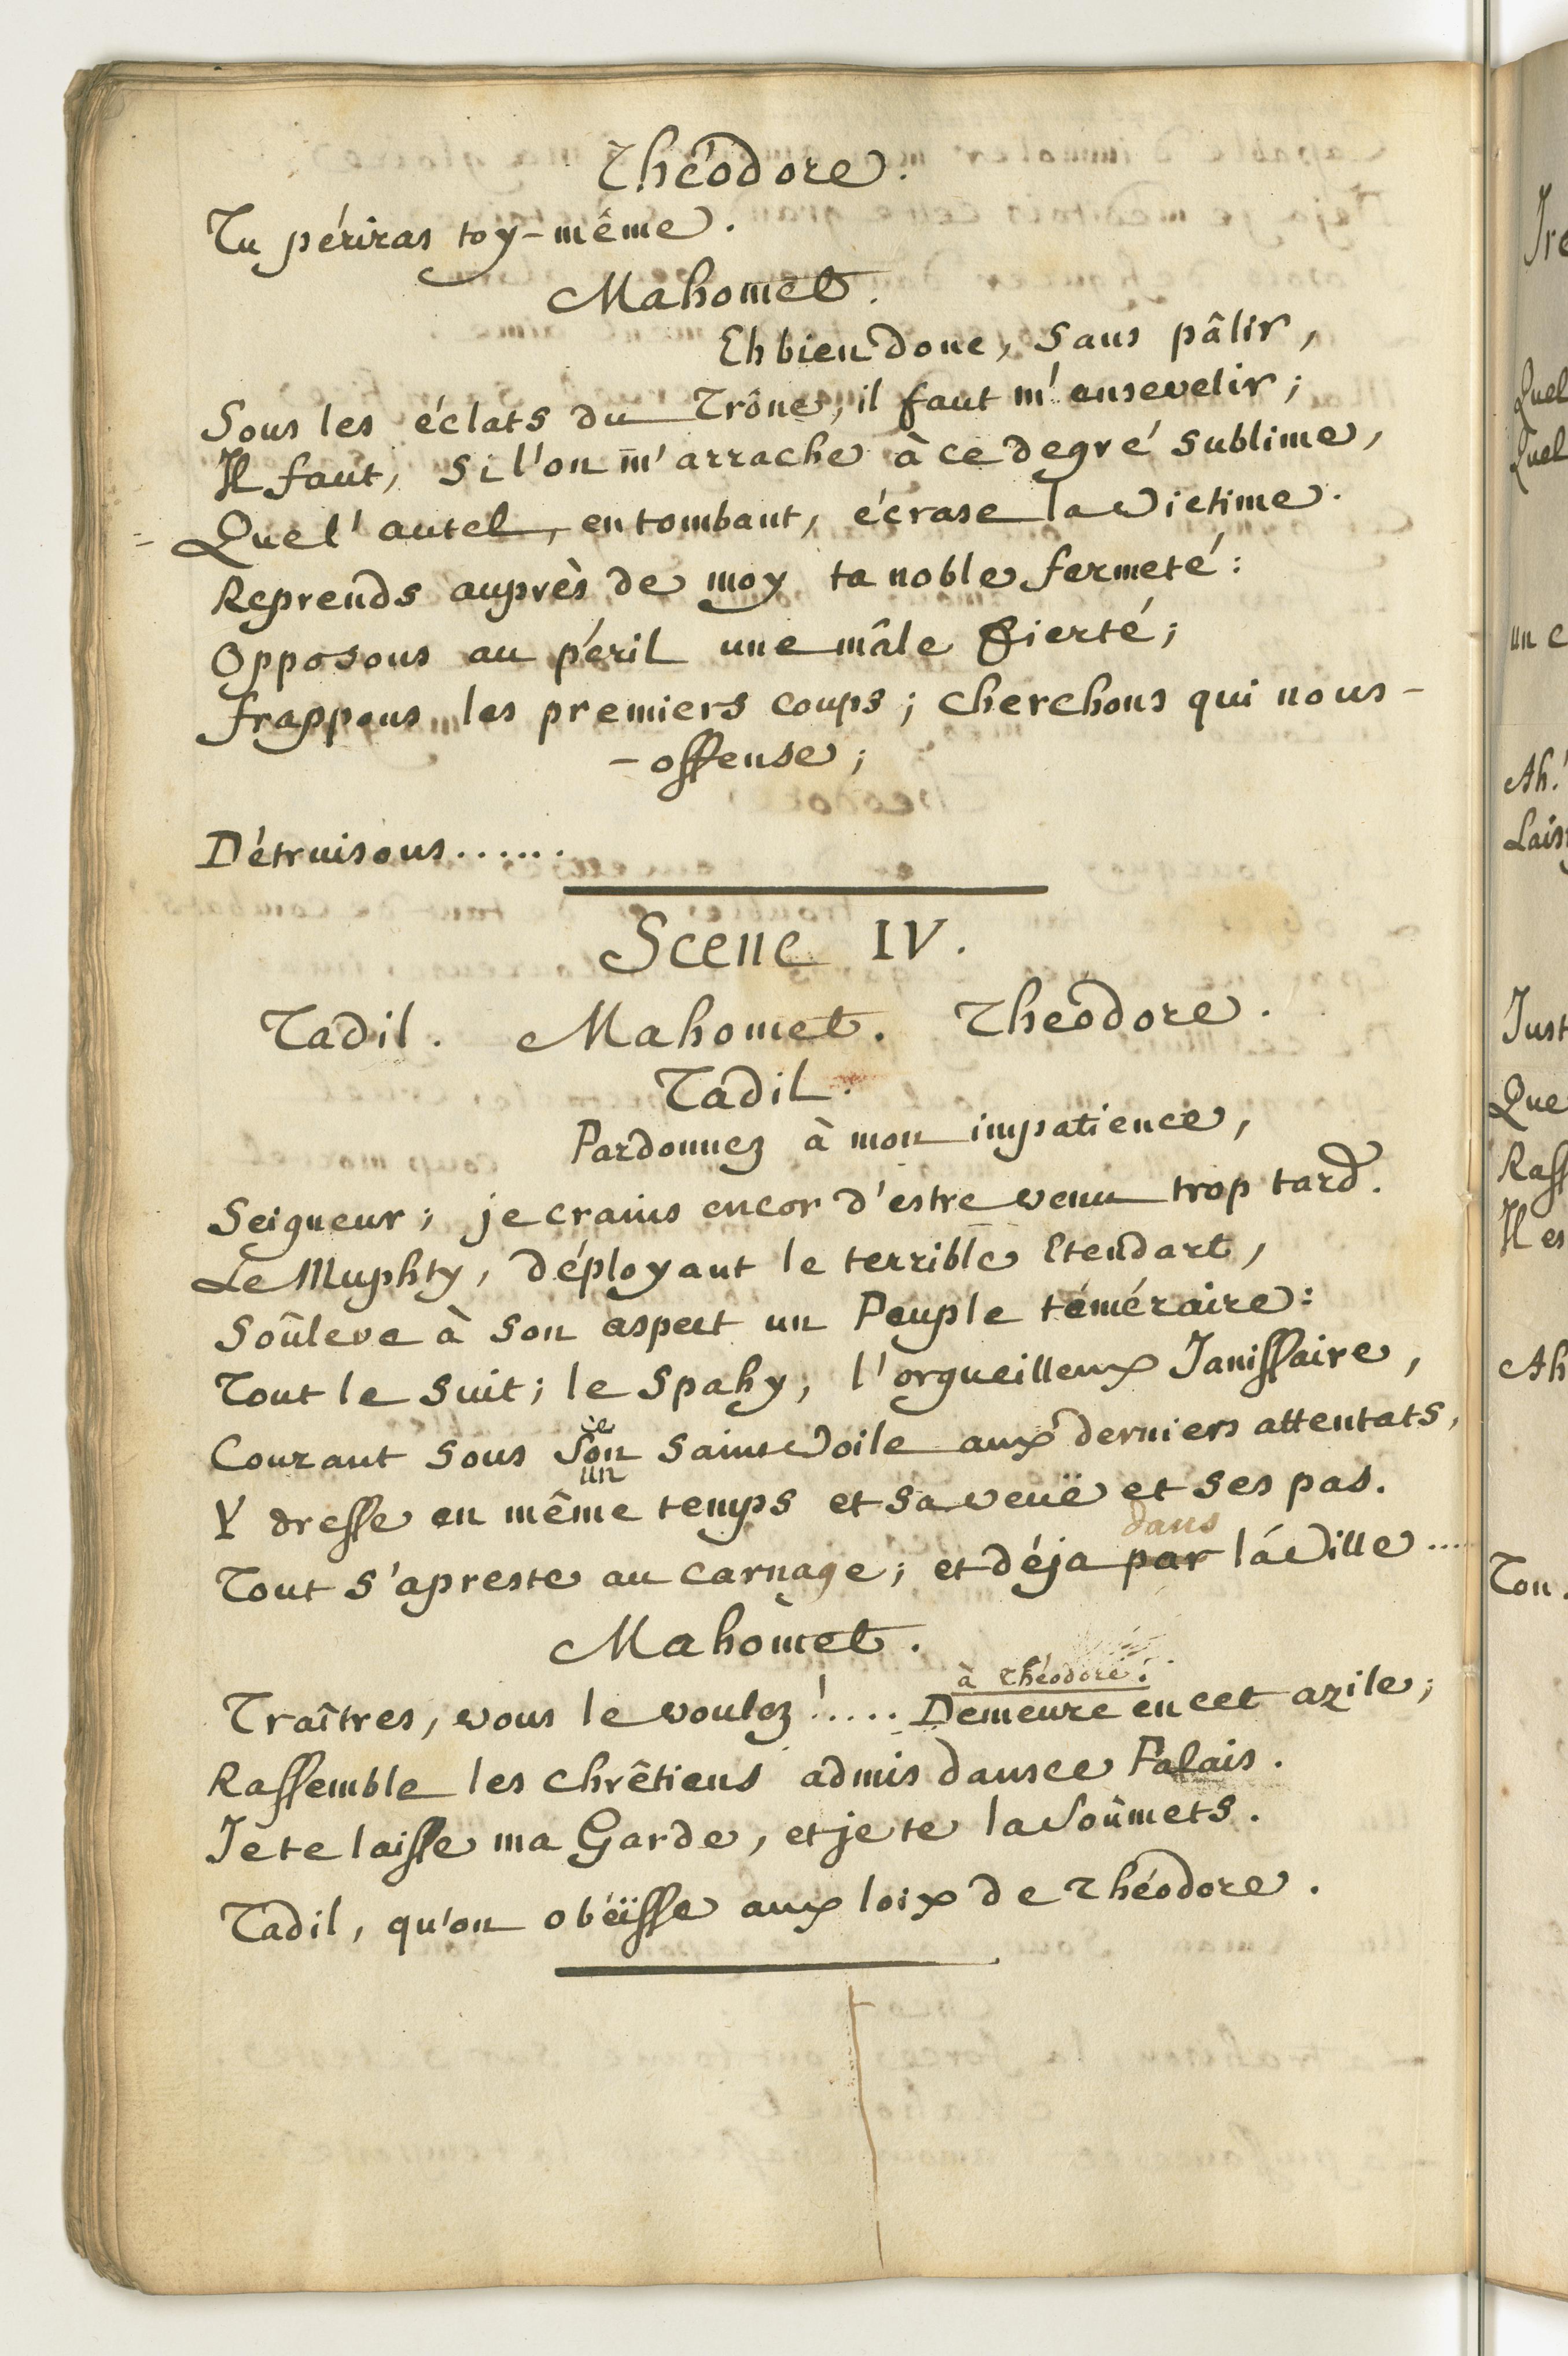 Théodore.
Tu périras toy-même.
Mahomet.
Eh bien donc, sans pâlir,
Sous les éclats du Trône, il faut m'ensevelir;
Il faut, si l'on m'arrache à ce degré sublime,
Que l'autel, en tombant, écrase la victime.
Reprends auprès de moy ta noble fermeté:
Opposons au péril une mâle fierté;
frappons les premiers coups; cherchons qui nous-
-offense;
Détruisons......
Scene IV.
Tadil. Mahomet. Theodore.
Tadil.
Pardonnez à mon impatience,
Seigneur; je crains encor d'estre venu trop tard.
Le Muphty, déployant le terrible Etendart,
Soûleve à son aspect un Peuple téméraire:
Tout le suit; le Spahy, l'orgueilleux Janissaire,
ce
Courant sous son saint voile aux derniers attentats,
un
Y dresse en même temps et sa veuë et ses pas.
dans
Tout s'apreste au carnage; et déja par la ville...
Mahomet.
à Théodore.
Traîtres, vous le voulez!.... Demeure en cet azile;
Rassemble les chrêtiens admis dans ce Palais.
Je te laisse ma Garde, et je te la soûmets.
Tadil, qu'on obéïsse aux loix de Théodore.
Ire
Quel
Quel
un c
Ah!
Lais
Just
Que
Rass
Il es
Ah
Ton